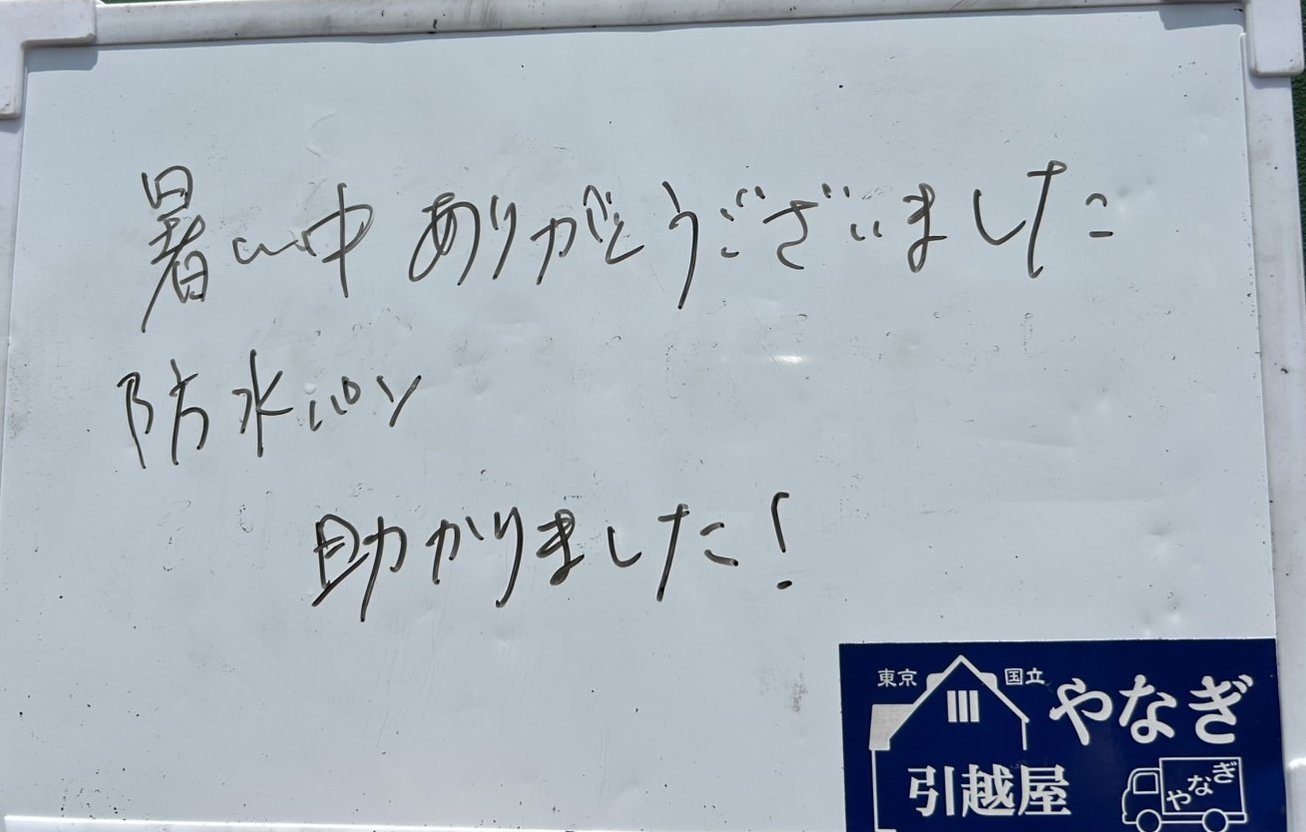 暑い中ありがとうございました
防水パン
助かりました!
東京 国立 やなぎ
引越屋 やなぎ